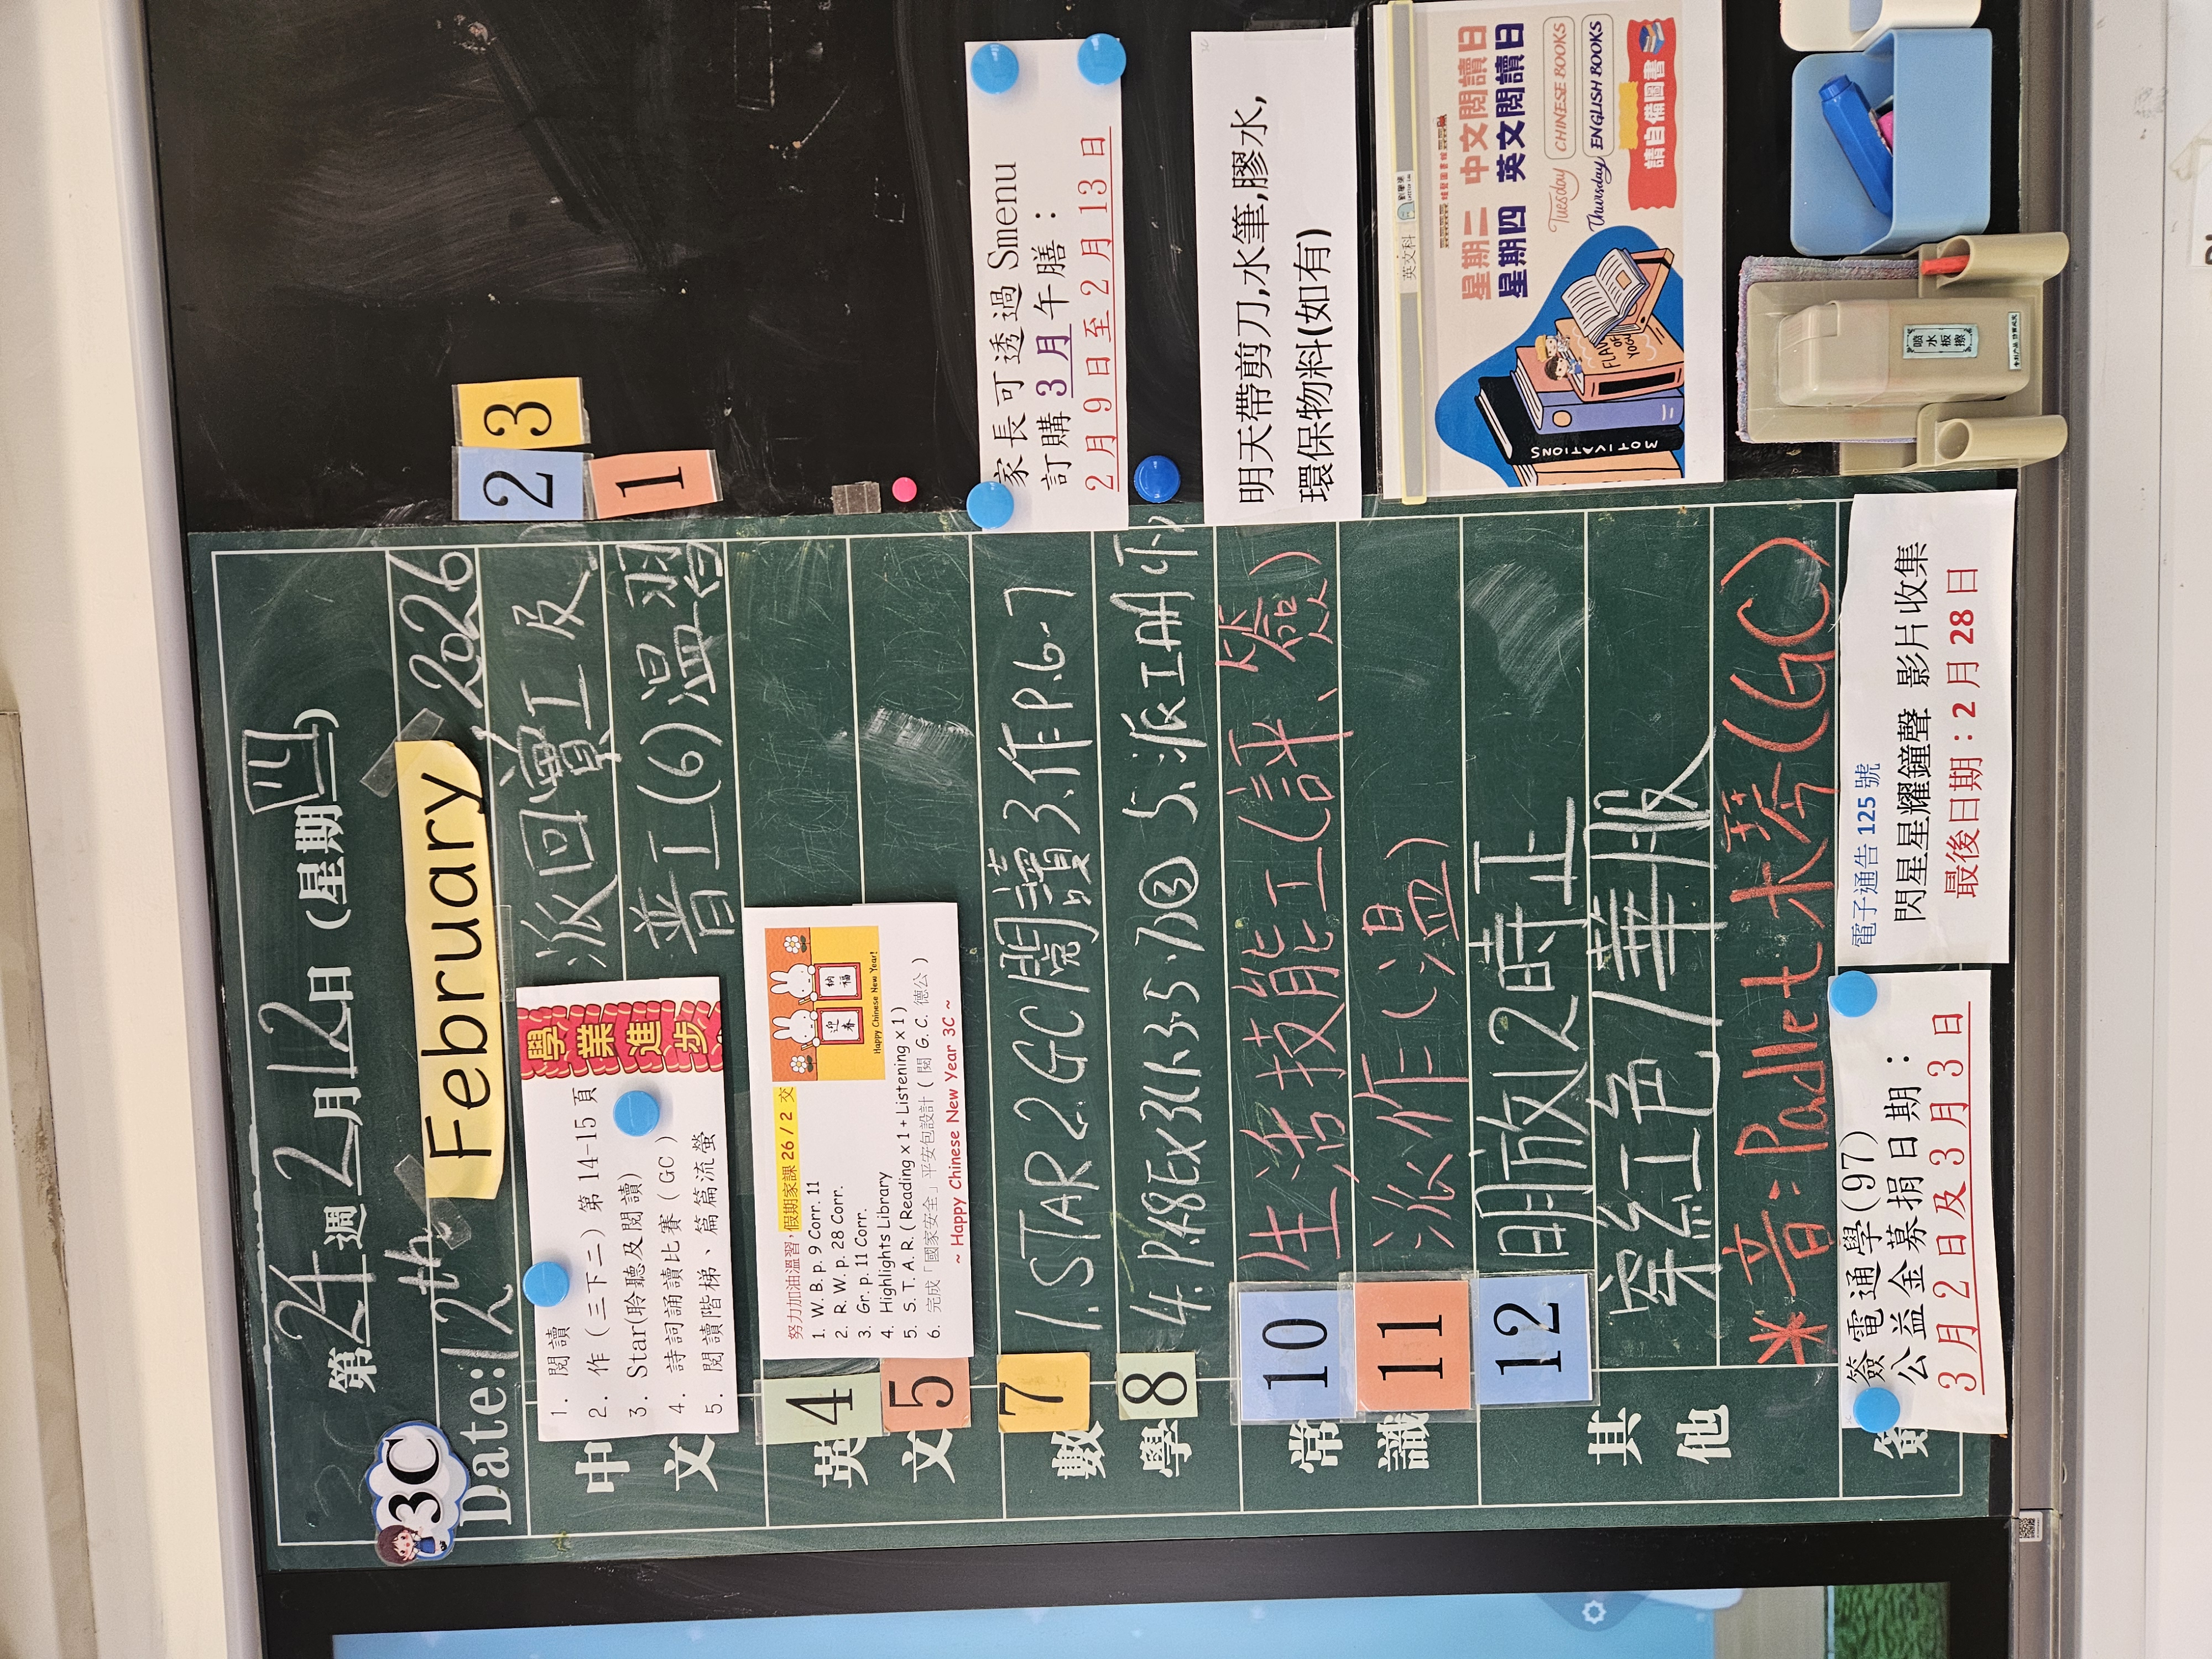 第24週 2月12日 (星期四)
3C
Date: 12th February, 2026
中文
1. 閱讀
2. 作(三下二)第14-15頁
3. Star(聆聽及閱讀)
4. 詩詞誦讀比賽(GC)
5. 閱讀階梯、篇篇流螢
學業進步
派回寶工及
普工(6)溫習
2
3
1
英文
4
5
努力加油溫習，假期家課 26/2 交
1. W. B. p. 9 Corr. 11
2. R. W. p. 28 Corr.
3. Gr. p. 11 Corr.
4. Highlights Library
5. S. T. A. R. (Reading x 1 + Listening x 1)
6. 完成「國家安全」平安包設計 ( 閱 G. C. 德公 )
~ Happy Chinese New Year 3C ~
迎春
納福
Happy Chinese New Year!
數學
7
1. STAR 2. GC閱讀 3. 作P.6-7
8
4. P.48 Ex 3C 1. 3. 5. 7) ③ 5. 派IAA
常識
10
生活技能工(評、簽)
11
派作(溫)
其他
12
明放12時正
深紅色/華服
*音: Padlet 木琴 (GC)
簽
簽電通學(97)
公益金募捐日期：
3月2日及3月3日
電子通告 125 號
閃星星耀鐘聲 影片收集
最後日期：2 月 28 日
家長可透過 Smenu
訂購 3月 午膳：
2月9日至2月13日
明天帶剪刀,水筆,膠水,
環保物料(如有)
英文科
星期二 中文閱讀日
星期四 英文閱讀日
Tuesday CHINESE BOOKS
Thursday ENGLISH BOOKS
請自備圖書
MOTIVATIONS
噴水板擦